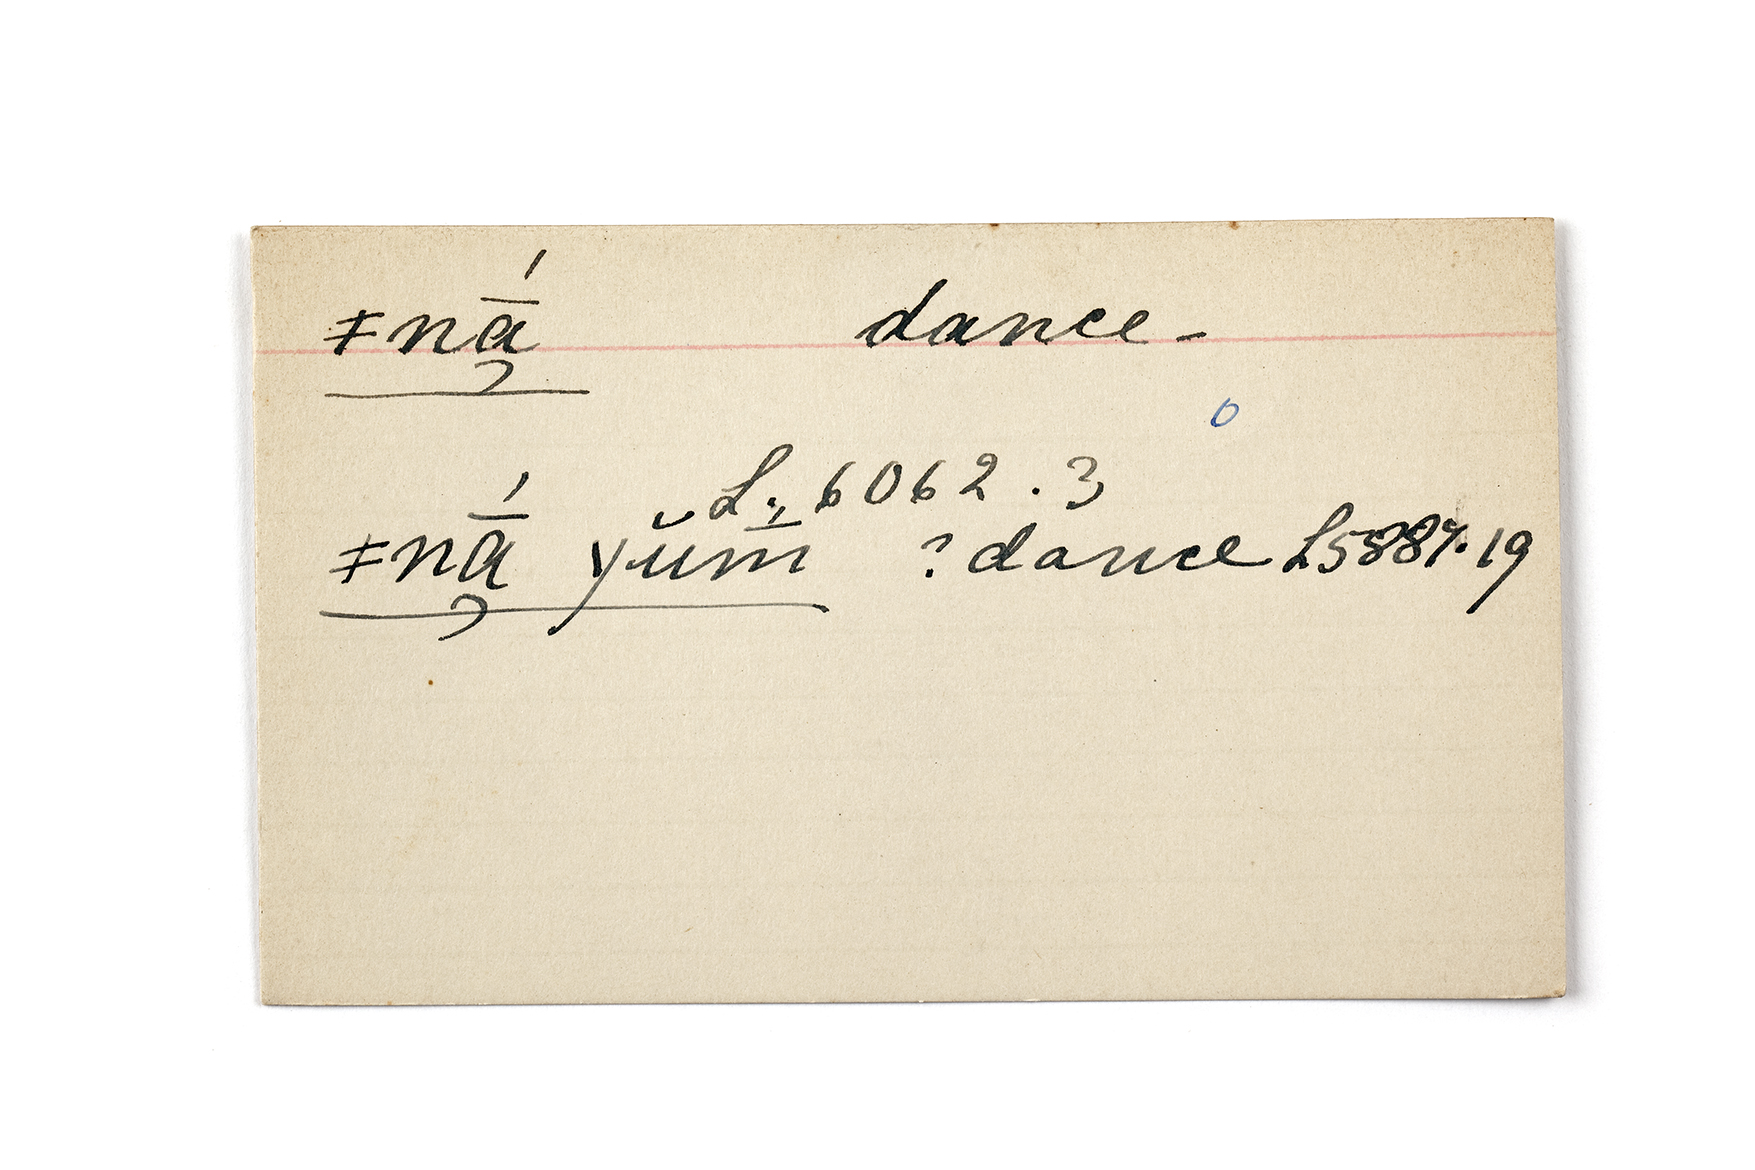 ǂnā̡́ dance -
L. 6062.3
ǂnā̡́ yŭm̄ ? dance L5887.19